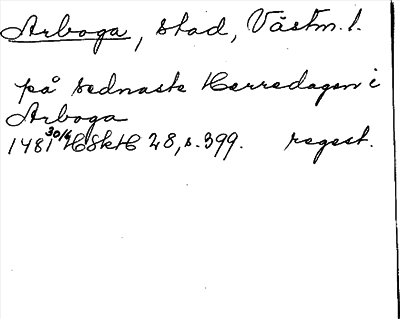 Arboga, stad, Västm. l.
på sednaste Herredagen i
Arboga
1481 30/6 HSkH 28, s. 399. regest.